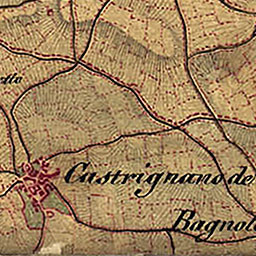 Castrignano de
Bagnol